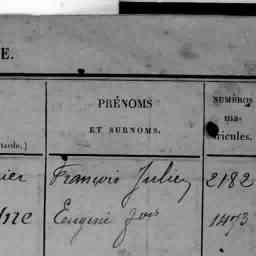 E.
PRÉNOMS
ET SURNOMS.
NUMÉROS
ma-
tricules.
ier François Julien 2182
ne Eugène 1473